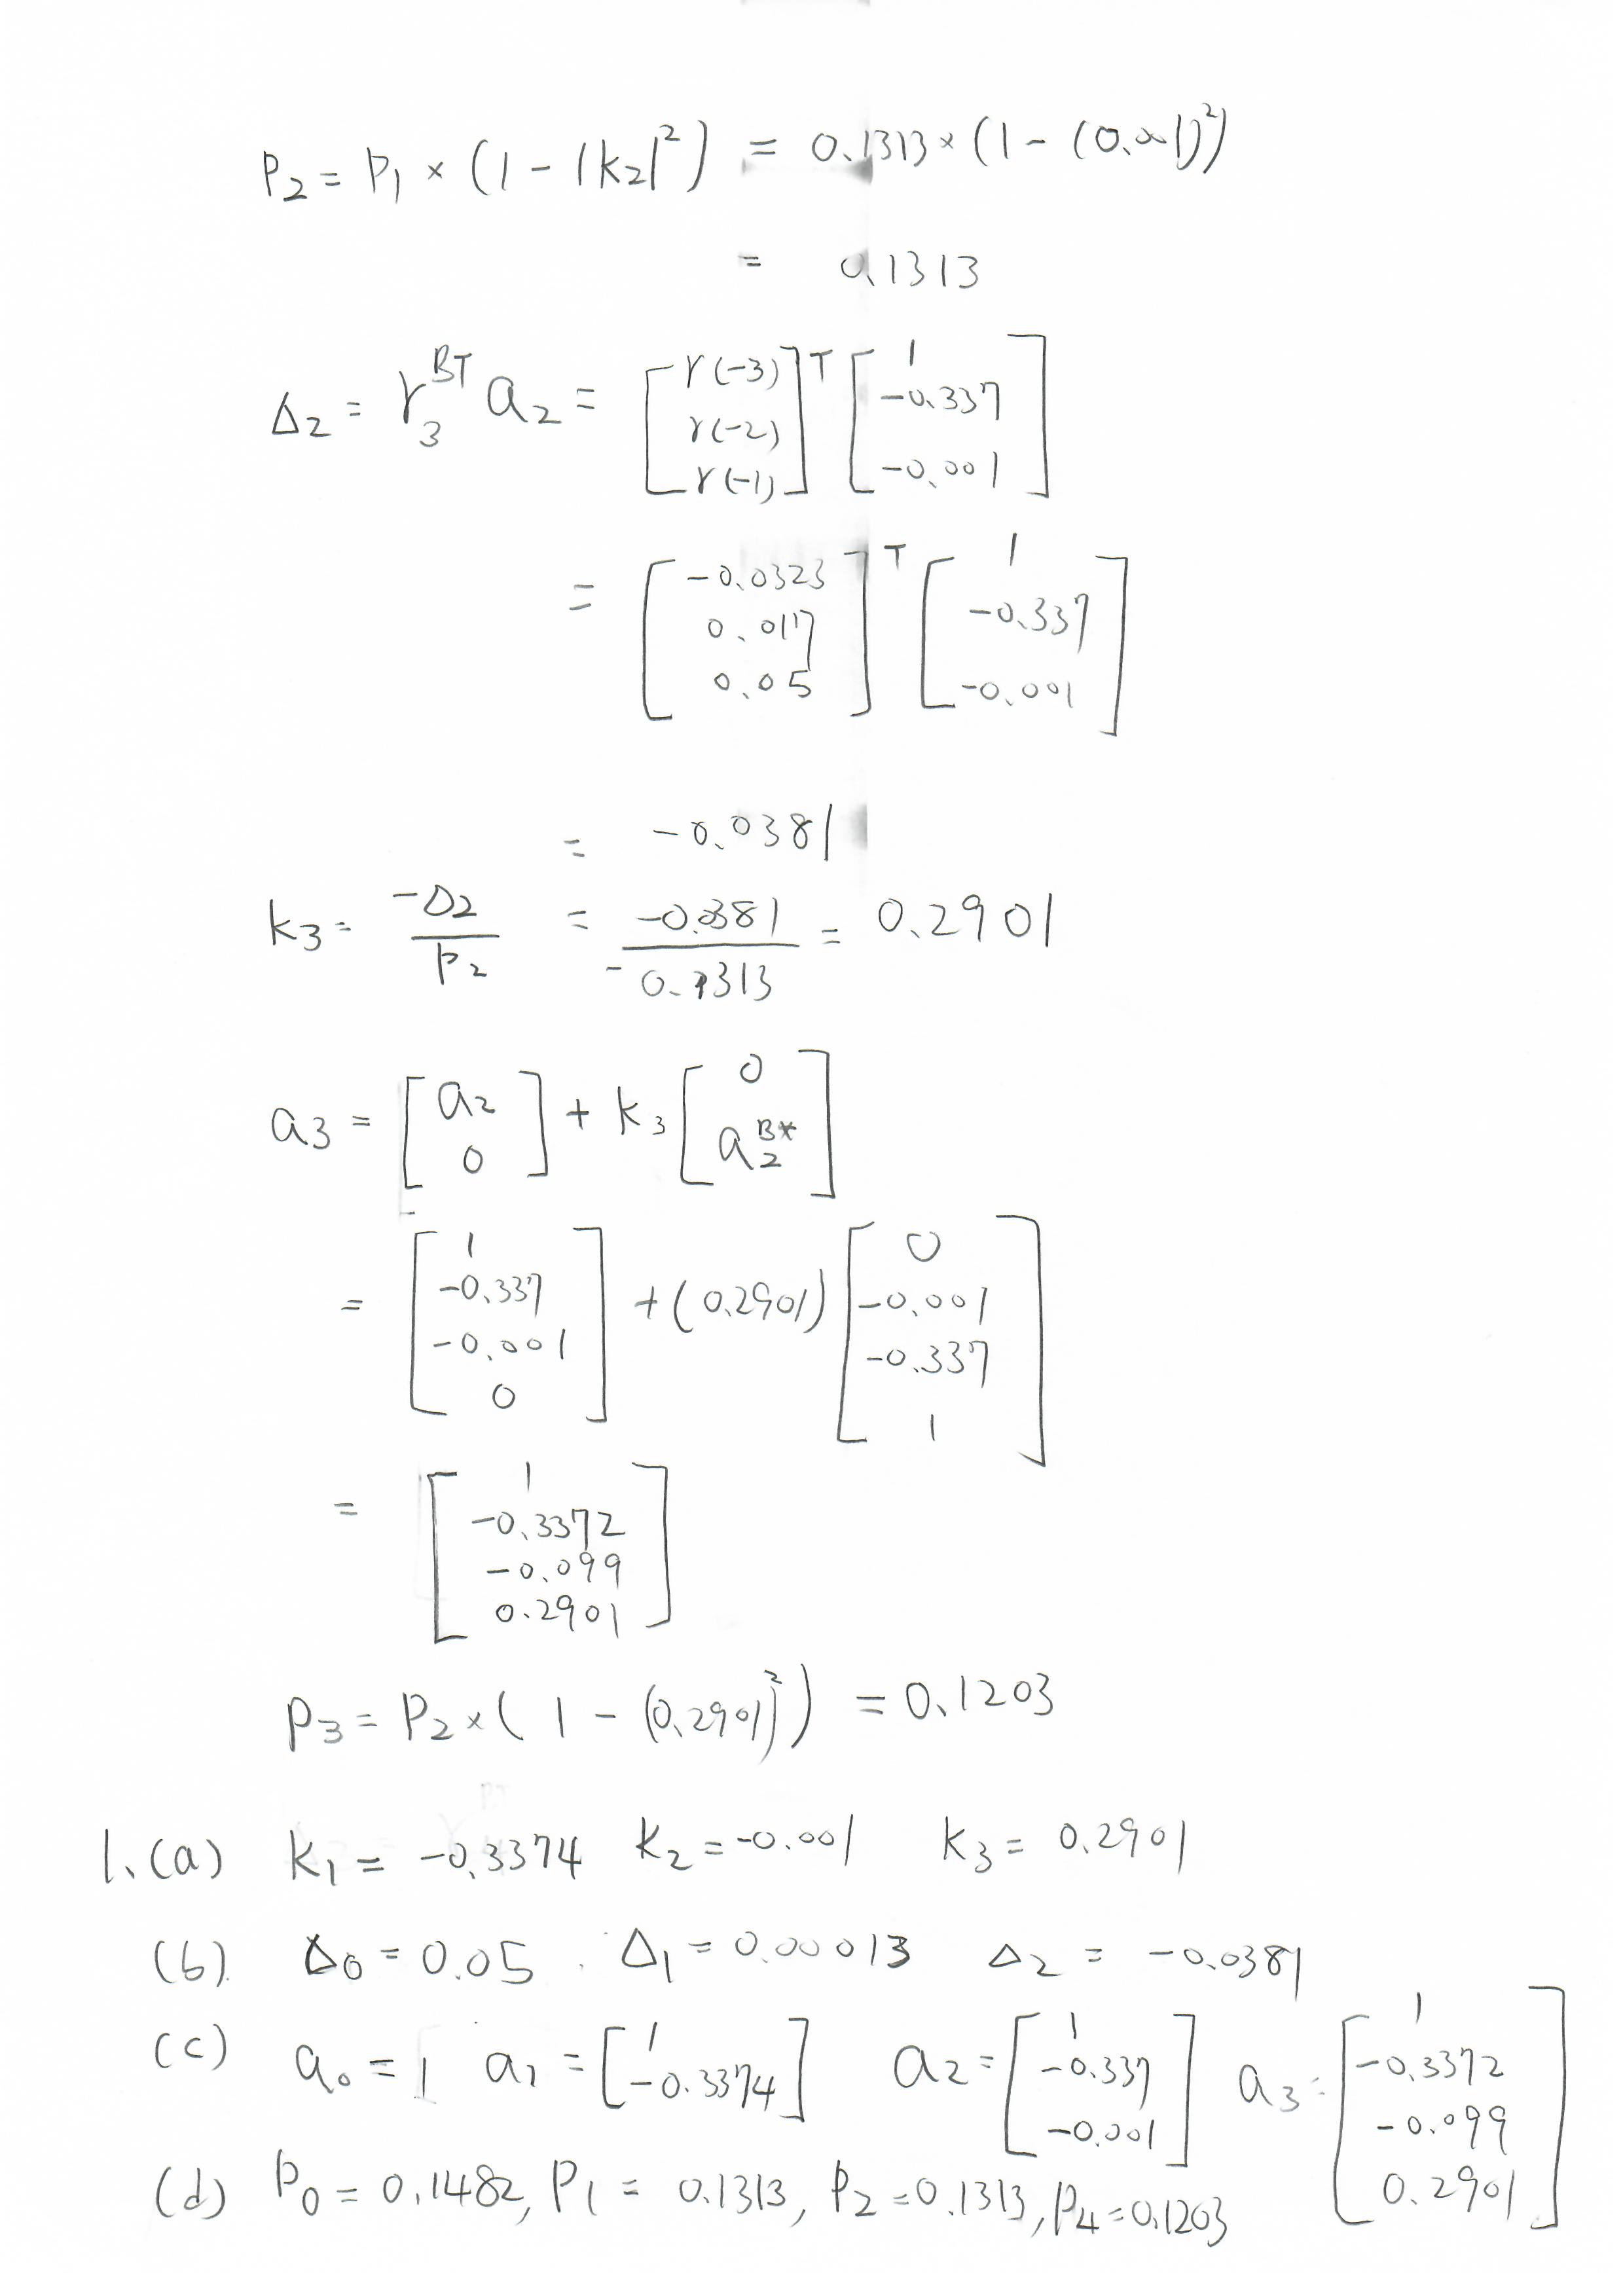 P₂ = P₁ × (1 - |k₂|²) = 0.1313 × (1 - (0.001)²)
= 0.1313
Δ₂ = r₃ᴮᵀ a₂ = [r(-3) r(-2) r(-1)]ᵀ [1 -0.337 -0.001]
= [-0.0323 0.017 0.05]ᵀ [1 -0.337 -0.001]
= -0.0381
k₃ = -Δ₂ / P₂ = -0.0381 / -0.1313 = 0.2901
a₃ = [a₂ 0] + k₃ [0 a₂ᴮ*]
= [1 -0.337 -0.001 0] + (0.2901) [0 -0.001 -0.337 1]
= [1 -0.3372 -0.099 0.2901]
P₃ = P₂ × (1 - (0.2901)²) = 0.1203
1. (a) k₁ = -0.3374 k₂ = -0.001 k₃ = 0.2901
(b) Δ₀ = 0.05 . Δ₁ = 0.00013 Δ₂ = -0.0381
(c) a₀ = 1 a₁ = [1 -0.3374] a₂ = [1 -0.337 -0.001] a₃ = [1 -0.3372 -0.099 0.2901]
(d) P₀ = 0.1482, P₁ = 0.1313, P₂ = 0.1313, P₄ = 0.1203